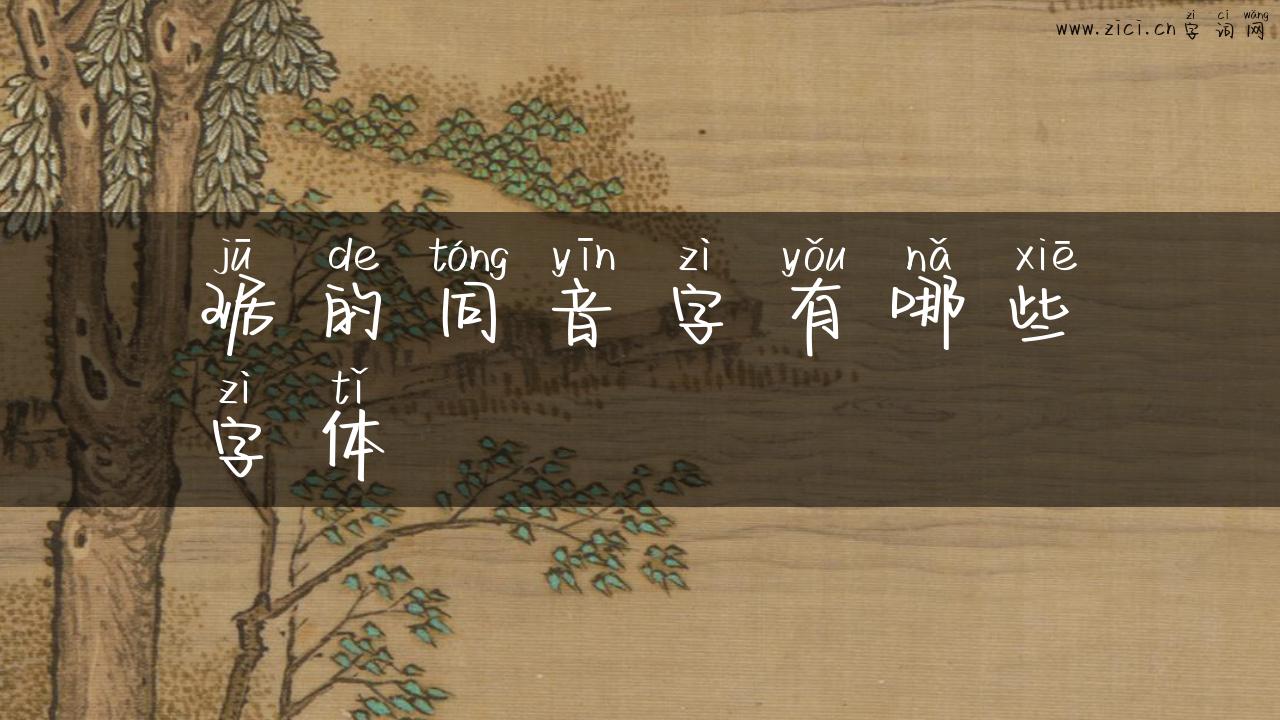 zì cí wǎng
www.zici.cn 字词网
jū de tóng yīn zì yǒu nǎ xiē
琚的同音字有哪些
zì tǐ
字体